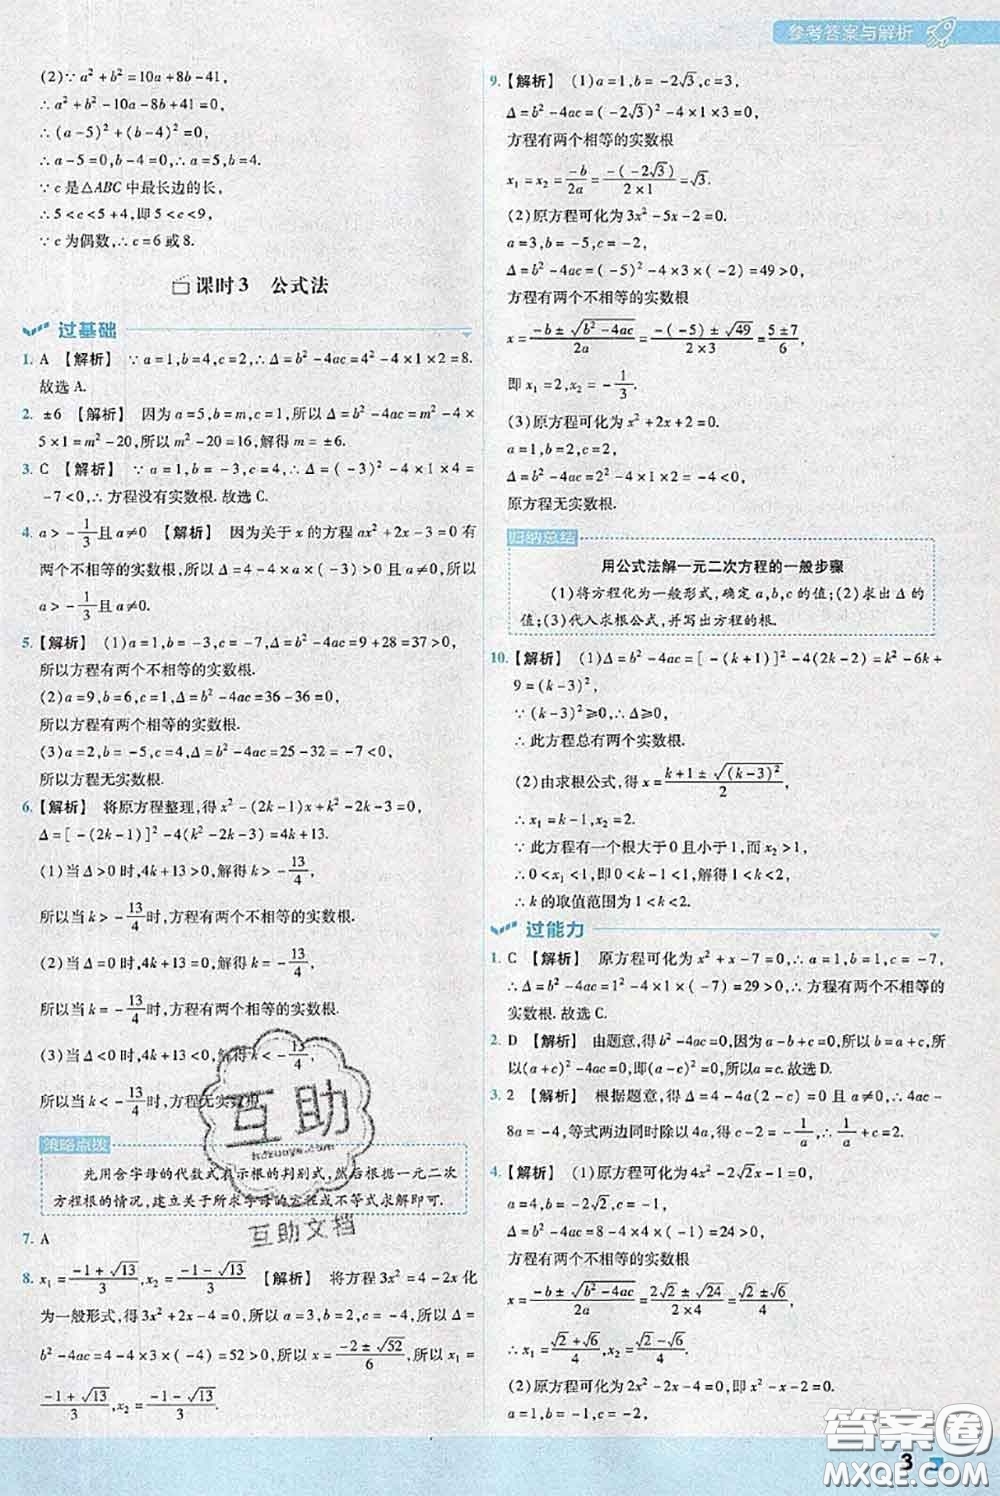 参考答案与解析
(2)∵a²+b²=10a+8b-41,
∴a²+b²-10a-8b+41=0,
∴(a-5)²+(b-4)²=0,
∴a-5=0,b-4=0,∴a=5,b=4.
∵c是△ABC中最长边的长,
∴5<c<5+4,即5<c<9,
∵c为偶数,∴c=6或8.
课时3 公式法
过基础
1. A 【解析】 ∵a=1,b=4,c=2,∴Δ=b²-4ac=4²-4×1×2=8.
故选A.
2. ±6 【解析】 因为a=5,b=m,c=1,所以Δ=b²-4ac=m²-4×
5×1=m²-20,所以m²-20=16,解得m=±6.
3. C 【解析】 ∵a=1,b=-3,c=4,∴Δ=(-3)²-4×1×4=
-7<0,∴方程没有实数根.故选C.
4. a>-1/3且a≠0 【解析】 因为关于x的方程ax²+2x-3=0有
两个不相等的实数根,所以Δ=4-4×a×(-3)>0且a≠0,所以
a>-1/3且a≠0.
5.【解析】 (1)a=1,b=-3,c=-7,Δ=b²-4ac=9+28=37>0,
所以方程有两个不相等的实数根.
(2)a=9,b=6,c=1,Δ=b²-4ac=36-36=0,
所以方程有两个相等的实数根.
(3)a=2,b=-5,c=4,Δ=b²-4ac=25-32=-7<0,
所以方程无实数根.
6.【解析】 将原方程整理,得x²-(2k-1)x+k²-2k-3=0,
Δ=[-(2k-1)]²-4(k²-2k-3)=4k+13.
(1)当Δ>0时,4k+13>0,解得k>-13/4,
所以当k>-13/4时,方程有两个不相等的实数根.
(2)当Δ=0时,4k+13=0,解得k=-13/4,
所以当k=-13/4时,方程有两个相等的实数根.
(3)当Δ<0时,4k+13<0,解得k<-13/4,
所以当k<-13/4时,方程无实数根.
策略点拨
先用含字母的代数式表示根的判别式,然后根据一元二次
方程根的情况,建立关于所求字母的方程或不等式求解即可.
7. A
8. x₁=(-1+√13)/3,x₂=(-1-√13)/3 【解析】 将方程3x²=4-2x化
为一般形式,得3x²+2x-4=0,所以a=3,b=2,c=-4,所以Δ=
b²-4ac=4-4×3×(-4)=52>0,所以x=(-2±√52)/6,所以x₁=
(-1+√13)/3,x₂=(-1-√13)/3.
9.【解析】 (1)a=1,b=-2√3,c=3,
Δ=b²-4ac=(-2√3)²-4×1×3=0,
方程有两个相等的实数根
x₁=x₂=-b/2a=-(-2√3)/(2×1)=√3.
(2)原方程可化为3x²-5x-2=0.
a=3,b=-5,c=-2,
Δ=b²-4ac=(-5)²-4×3×(-2)=49>0,
方程有两个不相等的实数根
x=(-b±√(b²-4ac))/2a=(-(-5)±√49)/(2×3)=(5±7)/6,
即x₁=2,x₂=-1/3.
(3)原方程可化为x²+2x+2=0.
a=1,b=2,c=2,
Δ=b²-4ac=2²-4×1×2=-4<0,
原方程无实数根.
归纳总结
用公式法解一元二次方程的一般步骤
(1)将方程化为一般形式,确定a,b,c的值;(2)求出Δ的
值;(3)代入求根公式,并写出方程的根.
10.【解析】 (1)Δ=b²-4ac=[-(k+1)]²-4(2k-2)=k²-6k+
9=(k-3)²,
∵(k-3)²≥0,∴Δ≥0,
∴此方程总有两个实数根.
(2)由求根公式,得x=(k+1±√(k-3)²)/2,
∴x₁=k-1,x₂=2.
∵此方程有一个根大于0且小于1,而x₂>1,
∴0<x₁<1,即0<k-1<1,解得1<k<2,
∴k的取值范围为1<k<2.
过能力
1. C 【解析】 原方程可化为x²+x-7=0,∴a=1,b=1,c=-7,
∴Δ=b²-4ac=1²-4×1×(-7)=29>0,∴方程有两个不相等的
实数根.故选C.
2. D 【解析】 由题意,得b²-4ac=0,因为a-b+c=0,所以b=a+c,所
以(a+c)²-4ac=0,即(a-c)²=0,所以a=c.故选D.
3. 2 【解析】 根据题意,得Δ=4-4a(2-c)=0,整理,得4ac-
8a=-4,等式两边同时除以4a,得c-2=-1/a,所以1/a+c=2.
4.【解析】 (1)原方程可化为4x²-2√2x-1=0,
a=4,b=-2√2,c=-1,
Δ=b²-4ac=8-4×4×(-1)=24>0,
方程有两个不相等的实数根
x=(-b±√(b²-4ac))/2a=(2√2±√24)/(2×4)=(√2±√6)/4,
∴x₁=(√2+√6)/4,x₂=(√2-√6)/4.
(2)原方程可化为2x²-2x-4=0,即x²-x-2=0.
a=1,b=-1,c=-2,
互助
hdzuoye.com
互助文档
答案圈
MXQE.COM
3